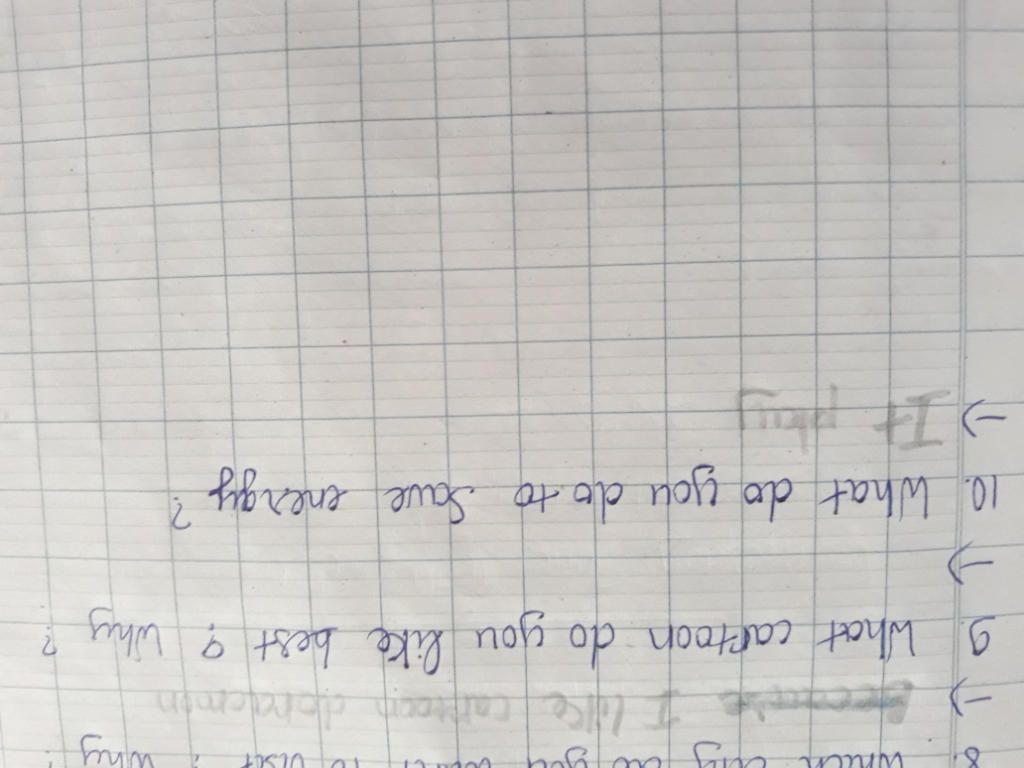 8. Which city do you want to visit ? Why ?
→ Because I like cartoon doraemon
9. What cartoon do you like best ? Why ?
→
10. What do you do to save energy ?
→ It play